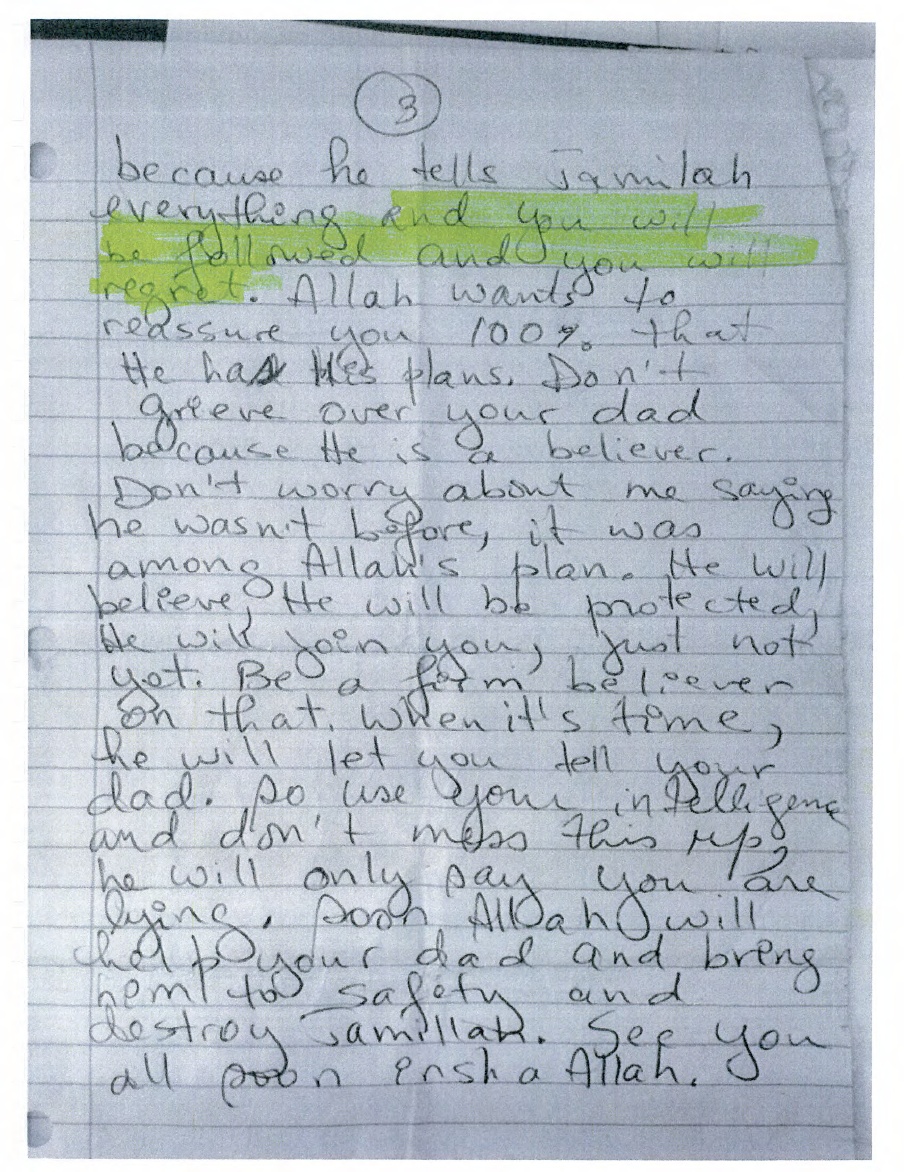 3
because he tells Jamilah
everything and you will
be followed and you will
regret. Allah wants to
reassure you 100% that
He has His plans. Don't
grieve over your dad
because He is a believer.
Don't worry about me saying
he wasn't before, it was
among Allah's plan. He will
believe, He will be protected,
He will join you, just not
yet. Be a firm believer
on that. When it's time,
he will let you tell your
dad. So use your intelligence
and don't mess this up,
he will only say you are
lying. Soon Allah will
help your dad and bring
hem to safety and
destroy Jamillah. See you
all soon insha Allah.